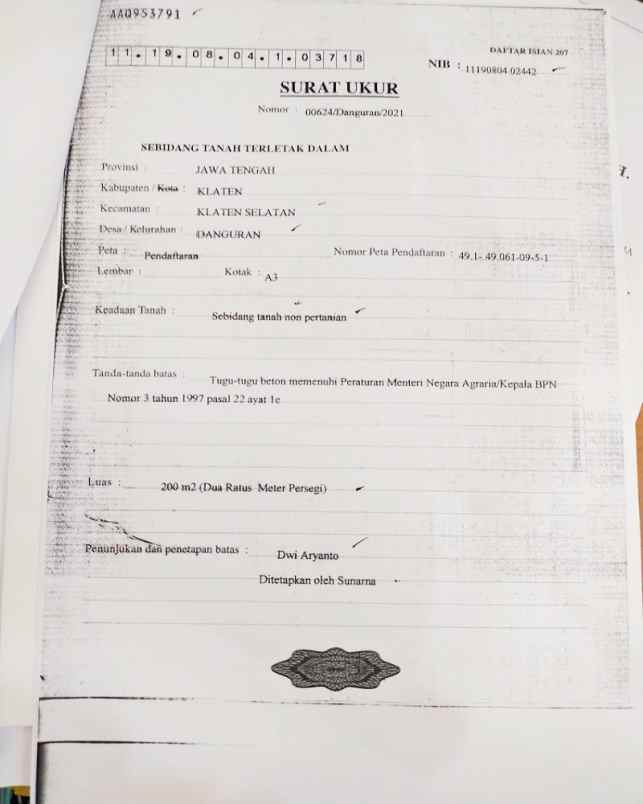 AAQ953791
11.19.08.04.1.03718
DAFTAR ISIAN 207
NIB : 11190804.02442
SURAT UKUR
Nomor : 00624/Danguran/2021
SEBIDANG TANAH TERLETAK DALAM
Provinsi : JAWA TENGAH
Kabupaten / Kota : KLATEN
Kecamatan : KLATEN SELATAN
Desa / Kelurahan : DANGURAN
Peta : Pendaftaran Nomor Peta Pendaftaran : 49.1-.49.061-09-5-1
Lembar : Kotak : A3
Keadaan Tanah : Sebidang tanah non pertanian
Tanda-tanda batas : Tugu-tugu beton memenuhi Peraturan Menteri Negara Agraria/Kepala BPN
Nomor 3 tahun 1997 pasal 22 ayat 1e
Luas : 200 m2 (Dua Ratus Meter Persegi)
Penunjukan dan penetapan batas : Dwi Aryanto
Ditetapkan oleh Sunarna